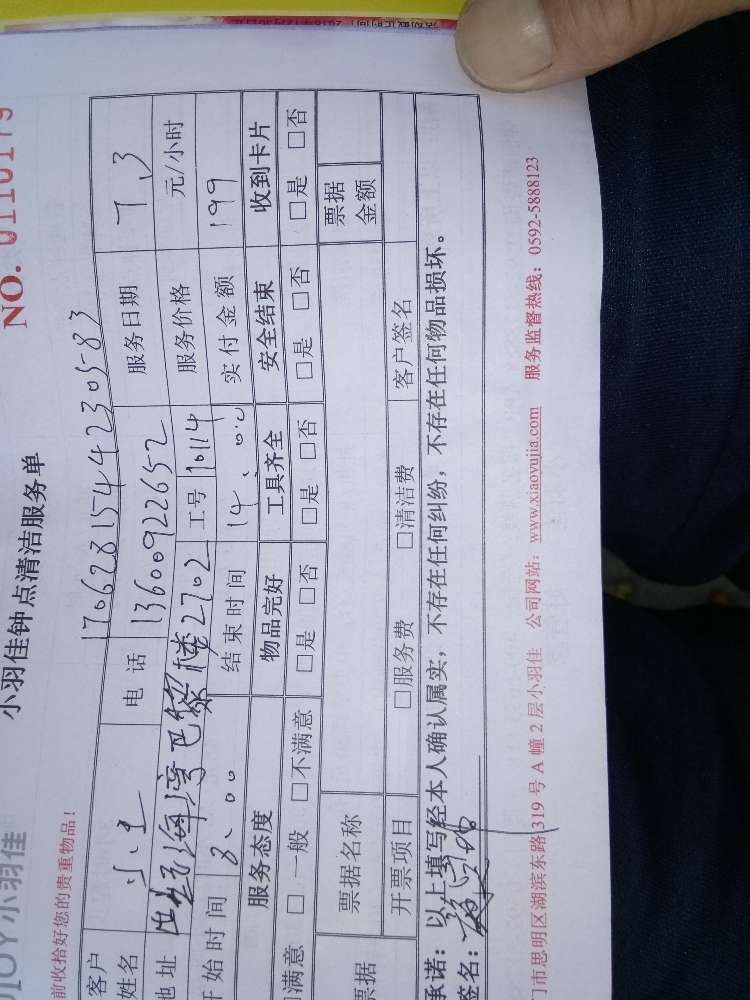 JOY小羽佳
小羽佳钟点清洁服务单
NO. 0110179
前收拾好您的贵重物品！
17062815442305-83
客户姓名 电话 13600922652 服务日期 7.3
地址 海湾巴黎楼2702 工号 10114 服务价格 元/小时
开始时间 8:00 结束时间 14:00 实付金额 199
服务态度 物品完好 工具齐全 安全结束 收到卡片
满意 □ 一般 □不满意 □是 □否 □是 □否 □是 □否 □是 □否
票据 票据名称 票据金额
开票项目 □服务费 □清洁费 客户签名
承诺：以上填写经本人确认属实，不存在任何纠纷，不存在任何物品损坏。
签名：
门市思明区湖滨东路319号A幢2层小羽佳 公司网站：www.xiaoyujia.com 服务监督热线：0592-5888123